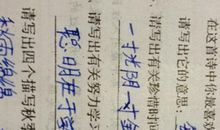 在这首诗中你最喜
请写出它的意思：
请写出有关珍惜时间
一寸光阴一寸金
请写出有关努力学习
聪明在于学
请写出四个描写秋季